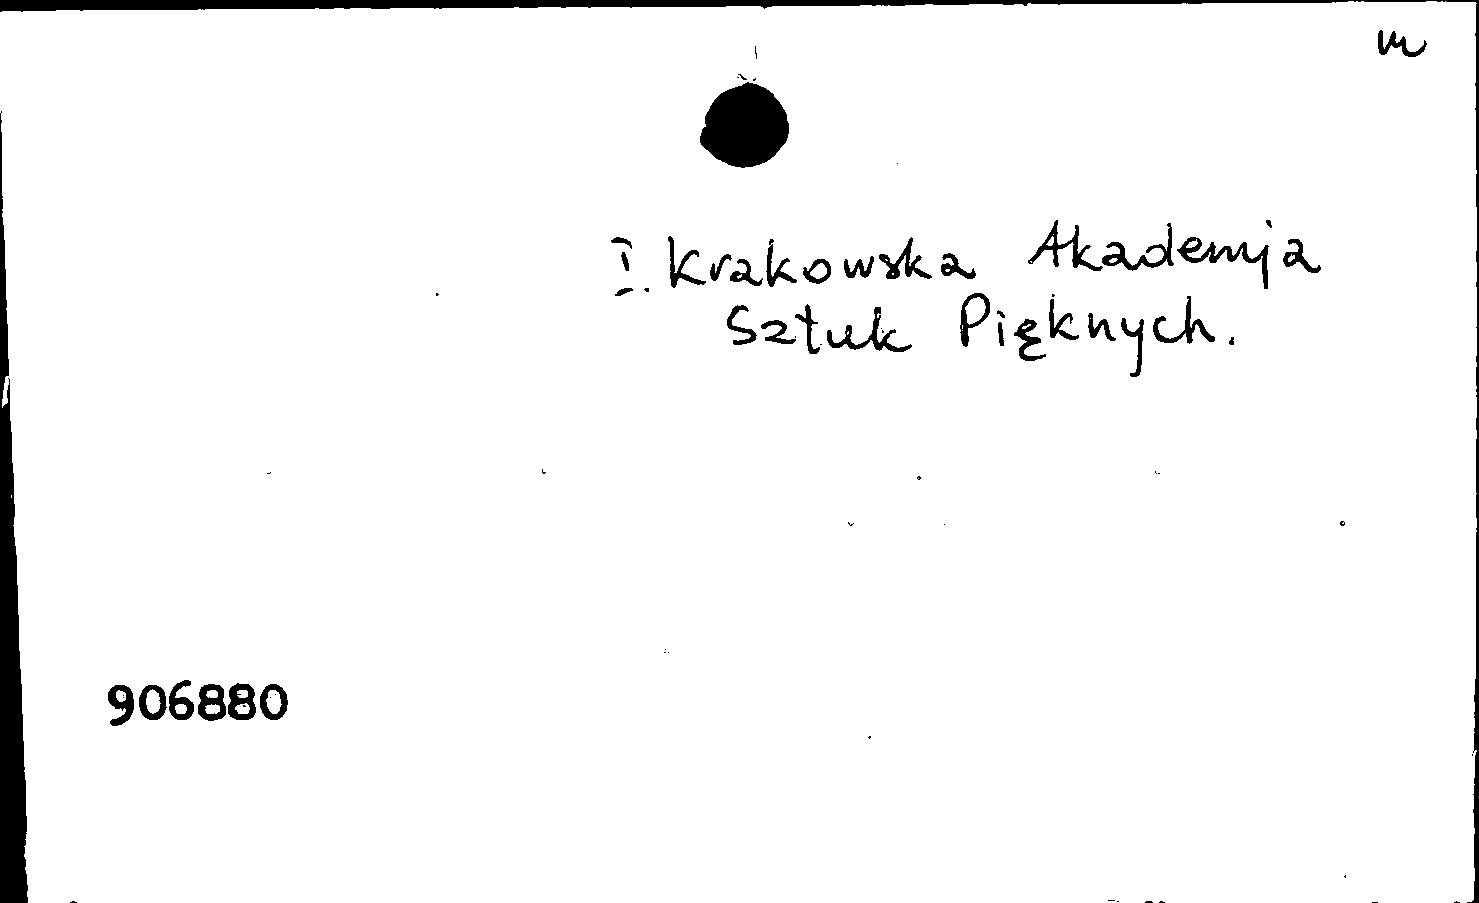 m
I. Krakowska Akademja
Sztuk Pięknych.
906880